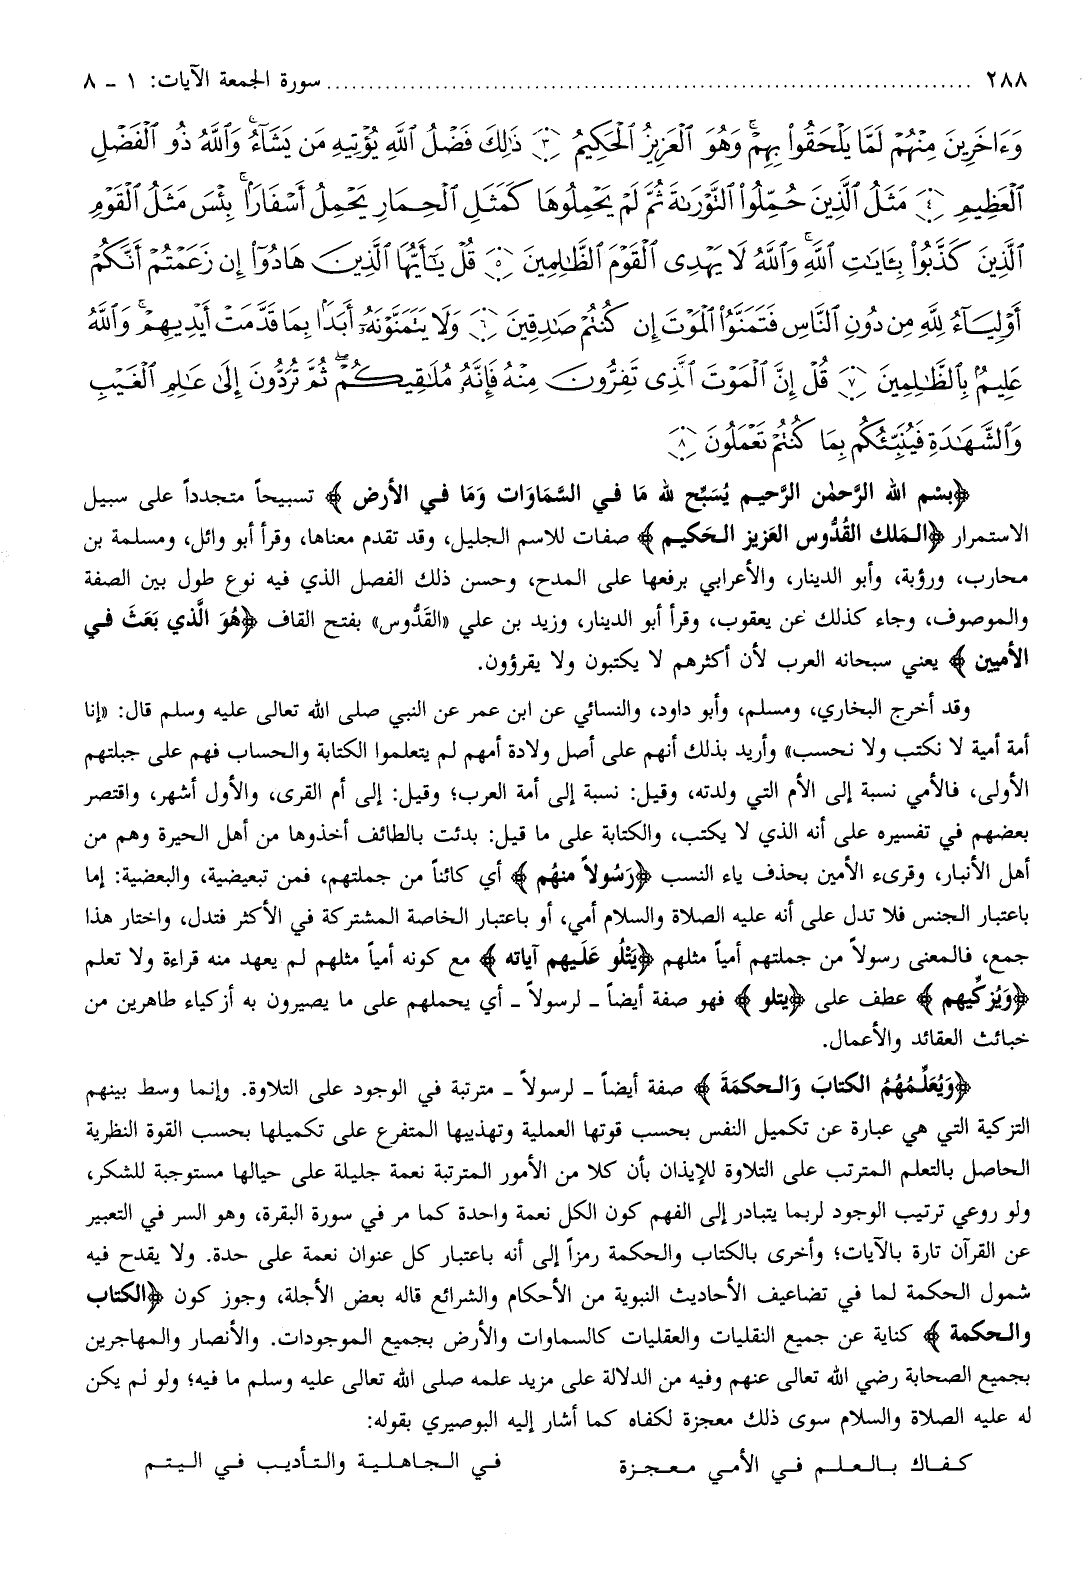 ٢٨٨ ........ سورة الجمعة الآيات: ١ ـ ٨
وَءَاخَرِينَ مِنْهُمْ لَمَّا يَلْحَقُوا۟ بِهِمْ ۚ وَهُوَ ٱلْعَزِيزُ ٱلْحَكِيمُ ٣ ذَٰلِكَ فَضْلُ ٱللَّهِ يُؤْتِيهِ مَن يَشَآءُ ۚ وَٱللَّهُ ذُو ٱلْفَضْلِ
ٱلْعَظِيمِ ٤ مَثَلُ ٱلَّذِينَ حُمِّلُوا۟ ٱلتَّوْرَىٰةَ ثُمَّ لَمْ يَحْمِلُوهَا كَمَثَلِ ٱلْحِمَارِ يَحْمِلُ أَسْفَارًۢا ۚ بِئْسَ مَثَلُ ٱلْقَوْمِ
ٱلَّذِينَ كَذَّبُوا۟ بِـَٔايَٰتِ ٱللَّهِ ۚ وَٱللَّهُ لَا يَهْدِى ٱلْقَوْمَ ٱلظَّٰلِمِينَ ٥ قُلْ يَٰٓأَيُّهَا ٱلَّذِينَ هَادُوٓا۟ إِن زَعَمْتُمْ أَنَّكُمْ
أَوْلِيَآءُ لِلَّهِ مِن دُونِ ٱلنَّاسِ فَتَمَنَّوُا۟ ٱلْمَوْتَ إِن كُنتُمْ صَٰدِقِينَ ٦ وَلَا يَتَمَنَّوْنَهُۥٓ أَبَدًۢا بِمَا قَدَّمَتْ أَيْدِيهِمْ ۚ وَٱللَّهُ
عَلِيمٌۢ بِٱلظَّٰلِمِينَ ٧ قُلْ إِنَّ ٱلْمَوْتَ ٱلَّذِى تَفِرُّونَ مِنْهُ فَإِنَّهُۥ مُلَٰقِيكُمْ ۖ ثُمَّ تُرَدُّونَ إِلَىٰ عَٰلِمِ ٱلْغَيْبِ
وَٱلشَّهَٰدَةِ فَيُنَبِّئُكُم بِمَا كُنتُمْ تَعْمَلُونَ ٨
﴿بسْم الله الرَّحمٰن الرَّحيم يُسَبِّح لله مَا في السَّمَاوَات وَمَا في الأرض﴾ تسبيحاً متجدداً على سبيل
الاستمرار ﴿المَلك القُدُّوس العَزيز الحَكيم﴾ صفات للاسم الجليل، وقد تقدم معناها، وقرأ أبو وائل، ومسلمة بن
محارب، ورؤبة، وأبو الدينار، والأعرابي برفعها على المدح، وحسن ذلك الفصل الذي فيه نوع طول بين الصفة
والموصوف، وجاء كذلك عن يعقوب، وقرأ أبو الدينار، وزيد بن علي «القَدُّوس» بفتح القاف ﴿هُوَ الَّذي بَعَثَ في
الأميين﴾ يعني سبحانه العرب لأن أكثرهم لا يكتبون ولا يقرؤون.
وقد أخرج البخاري، ومسلم، وأبو داود، والنسائي عن ابن عمر عن النبي صلى الله تعالى عليه وسلم قال: «إنا
أمة أمية لا نكتب ولا نحسب» وأريد بذلك أنهم على أصل ولادة أمهم لم يتعلموا الكتابة والحساب فهم على جبلتهم
الأولى، فالأمي نسبة إلى الأم التي ولدته، وقيل: نسبة إلى أمة العرب؛ وقيل: إلى أم القرى، والأول أشهر، واقتصر
بعضهم في تفسيره على أنه الذي لا يكتب، والكتابة على ما قيل: بدئت بالطائف أخذوها من أهل الحيرة وهم من
أهل الأنبار، وقرىء الأمين بحذف ياء النسب ﴿رَسُولاً منهُم﴾ أي كائناً من جملتهم، فمن تبعيضية، والبعضية: إما
باعتبار الجنس فلا تدل على أنه عليه الصلاة والسلام أمي، أو باعتبار الخاصة المشتركة في الأكثر فتدل، واختار هذا
جمع، فالمعنى رسولاً من جملتهم أمياً مثلهم ﴿يَتْلُو عَلَيهم آياته﴾ مع كونه أمياً مثلهم لم يعهد منه قراءة ولا تعلم
﴿وَيُزكِّيهم﴾ عطف على ﴿يتلو﴾ فهو صفة أيضاً ـ لرسولاً ـ أي يحملهم على ما يصيرون به أزكياء طاهرين من
خبائث العقائد والأعمال.
﴿وَيُعَلِّمُهُمُ الكتابَ وَالحكمَةَ﴾ صفة أيضاً ـ لرسولاً ـ مترتبة في الوجود على التلاوة. وإنما وسط بينهم
التزكية التي هي عبارة عن تكميل النفس بحسب قوتها العملية وتهذيبها المتفرع على تكميلها بحسب القوة النظرية
الحاصل بالتعلم المترتب على التلاوة للإيذان بأن كلا من الأمور المترتبة نعمة جليلة على حيالها مستوجبة للشكر،
ولو روعي ترتيب الوجود لربما يتبادر إلى الفهم كون الكل نعمة واحدة كما مر في سورة البقرة، وهو السر في التعبير
عن القرآن تارة بالآيات؛ وأخرى بالكتاب والحكمة رمزاً إلى أنه باعتبار كل عنوان نعمة على حدة. ولا يقدح فيه
شمول الحكمة لما في تضاعيف الأحاديث النبوية من الأحكام والشرائع قاله بعض الأجلة، وجوز كون ﴿الكتاب
والحكمة﴾ كناية عن جميع النقليات والعقليات كالسماوات والأرض بجميع الموجودات. والأنصار والمهاجرين
بجميع الصحابة رضي الله تعالى عنهم وفيه من الدلالة على مزيد علمه صلى الله تعالى عليه وسلم ما فيه؛ ولو لم يكن
له عليه الصلاة والسلام سوى ذلك معجزة لكفاه كما أشار إليه البوصيري بقوله:
كفاك بالعلم في الأمي معجزة في الجاهلية والتأديب في اليتم